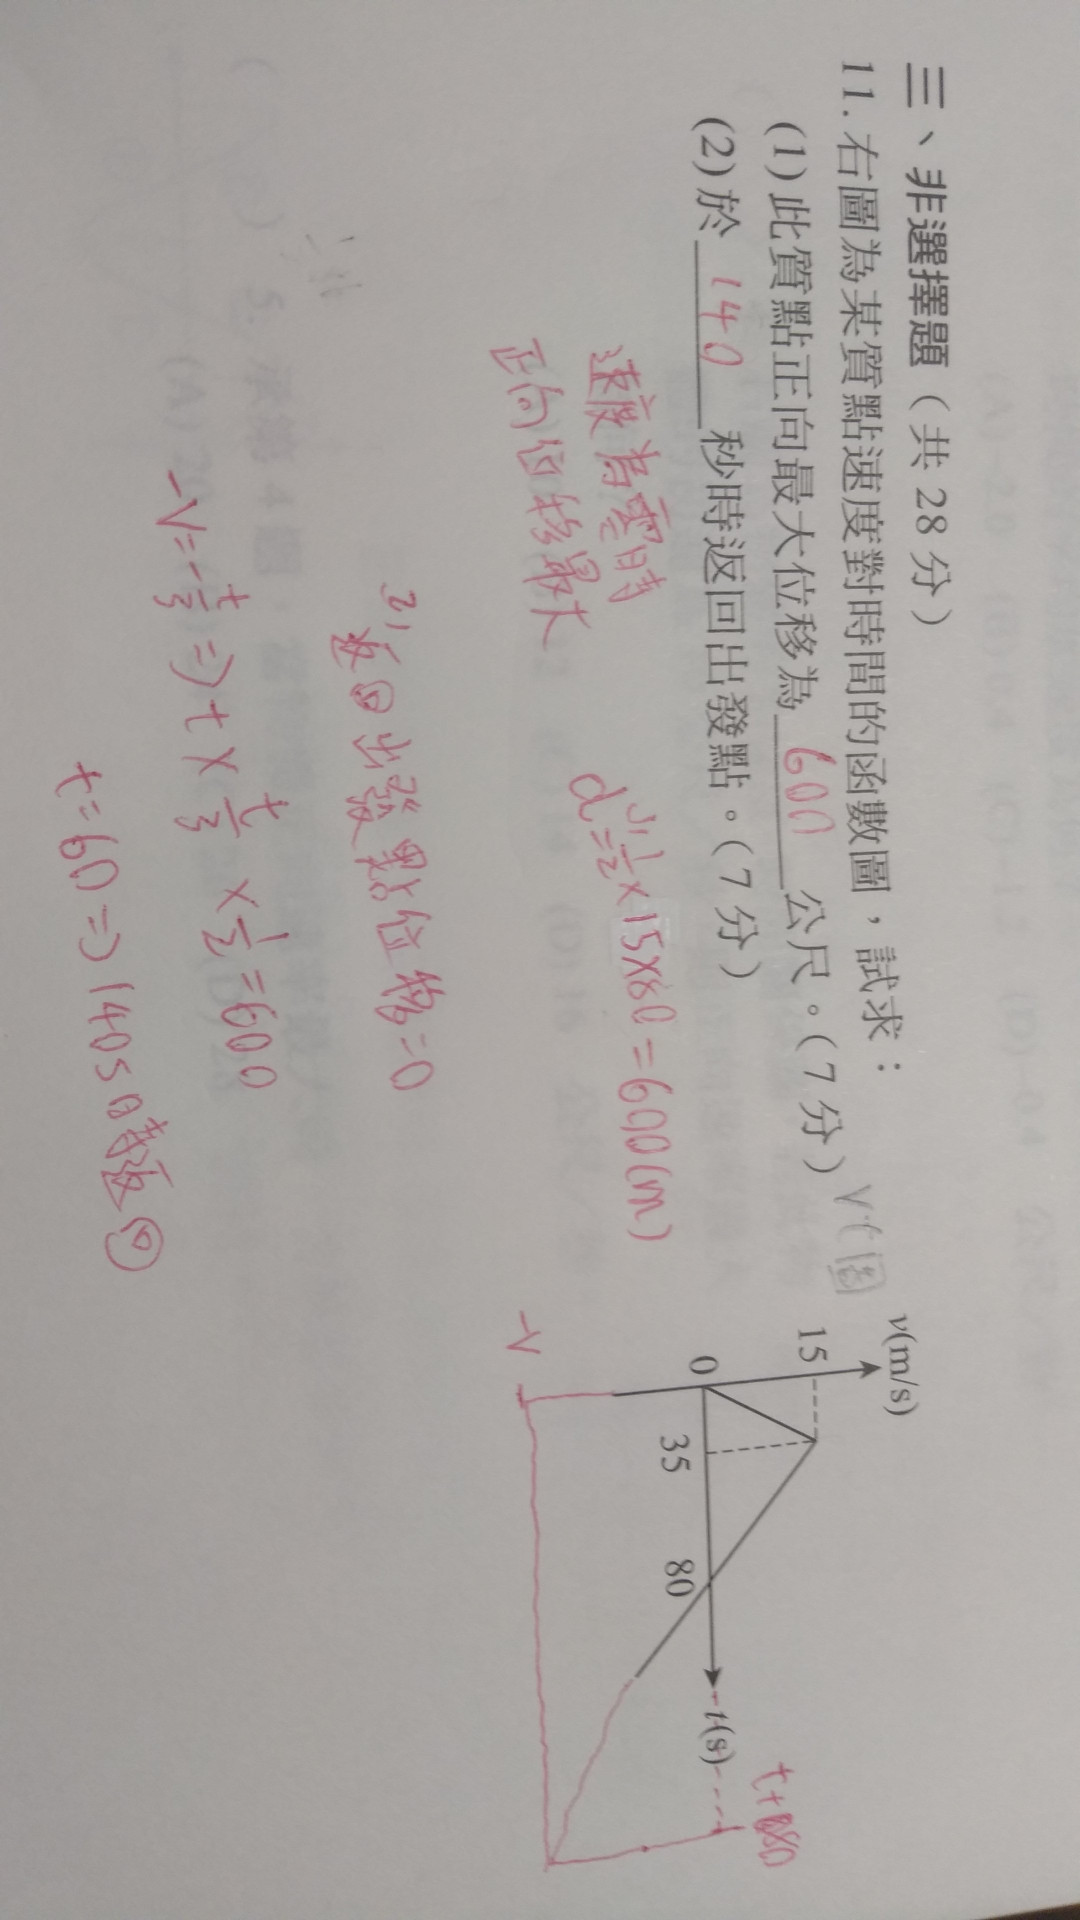 三、非選擇題（共 28 分）
11. 右圖為某質點速度對時間的函數圖，試求：
(1) 此質點正向最大位移為 600 公尺。（7 分）
(2) 於 140 秒時返回出發點。（7 分）
V-t 圖
v(m/s)
15
0
35
80
t(s)
t+80
-V
速度為零時
正向位移最大
1)
d=1/2×15×80=600(m)
2)
返回出發點位移=0
-V=-t/3 => t×t/3×1/2=600
t=60 => 140s時返回